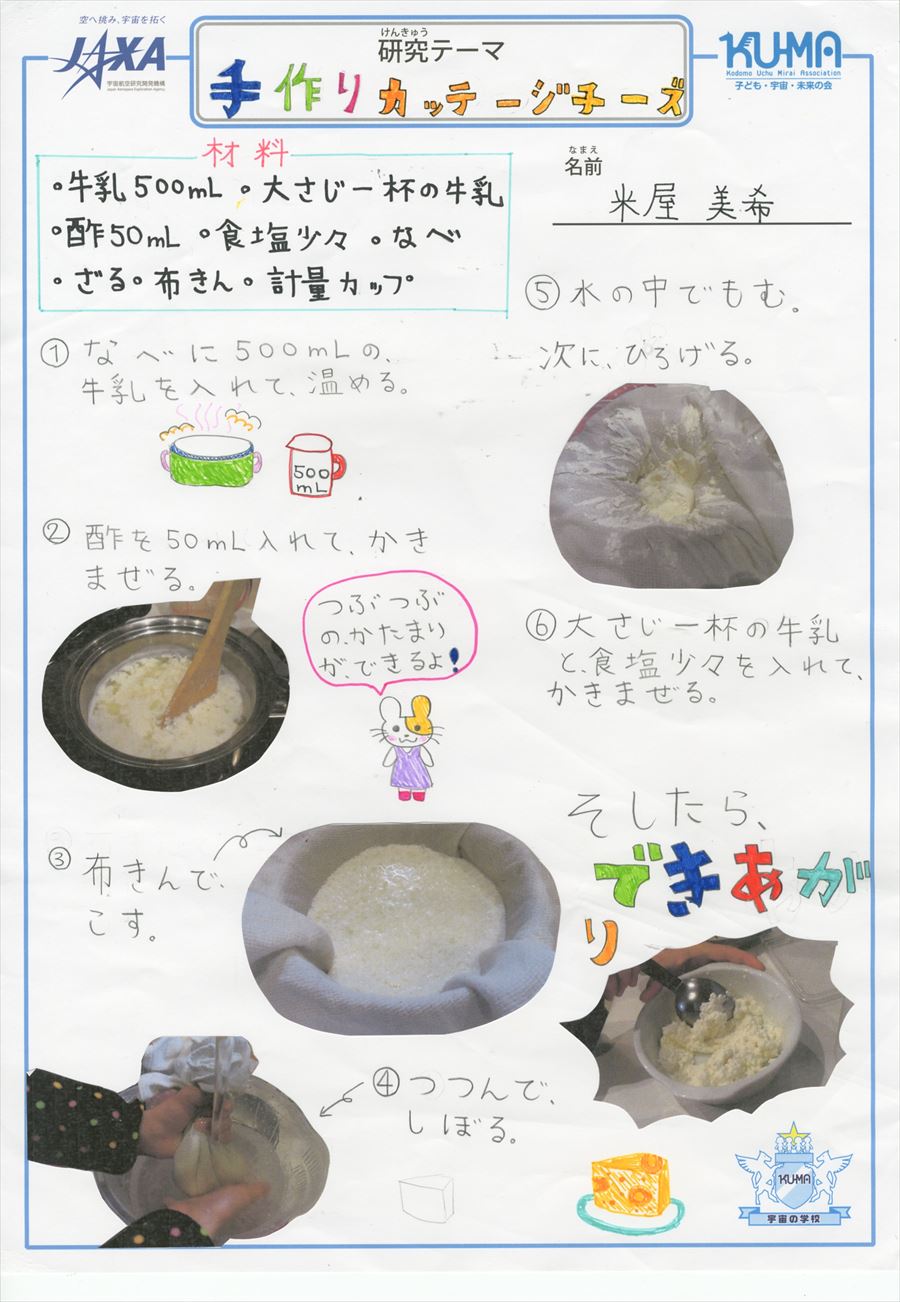 空へ挑み、宇宙を拓く
JAXA
宇宙航空研究開発機構
Japan Aerospace Exploration Agency
けんきゅう
研究テーマ
手作りカッテージチーズ
KU-MA
Kodomo Uchu Mirai Association
子ども・宇宙・未来の会
材料
・牛乳500mL・大さじ一杯の牛乳
・酢50mL・食塩少々・なべ
・ざる・布きん・計量カップ
なまえ
名前
米屋 美希
①なべに500mLの、
牛乳を入れて、温める。
500
mL
②酢を50mL入れて、かき
まぜる。
つぶつぶ
の、かたまり
が、できるよ!
③布きんで、
こす。
④つつんで、
しぼる。
⑤水の中でもむ。
次に、ひろげる。
⑥大さじ一杯の牛乳
と、食塩少々を入れて、
かきまぜる。
そしたら、
できあが
り
KU-MA
宇宙の学校